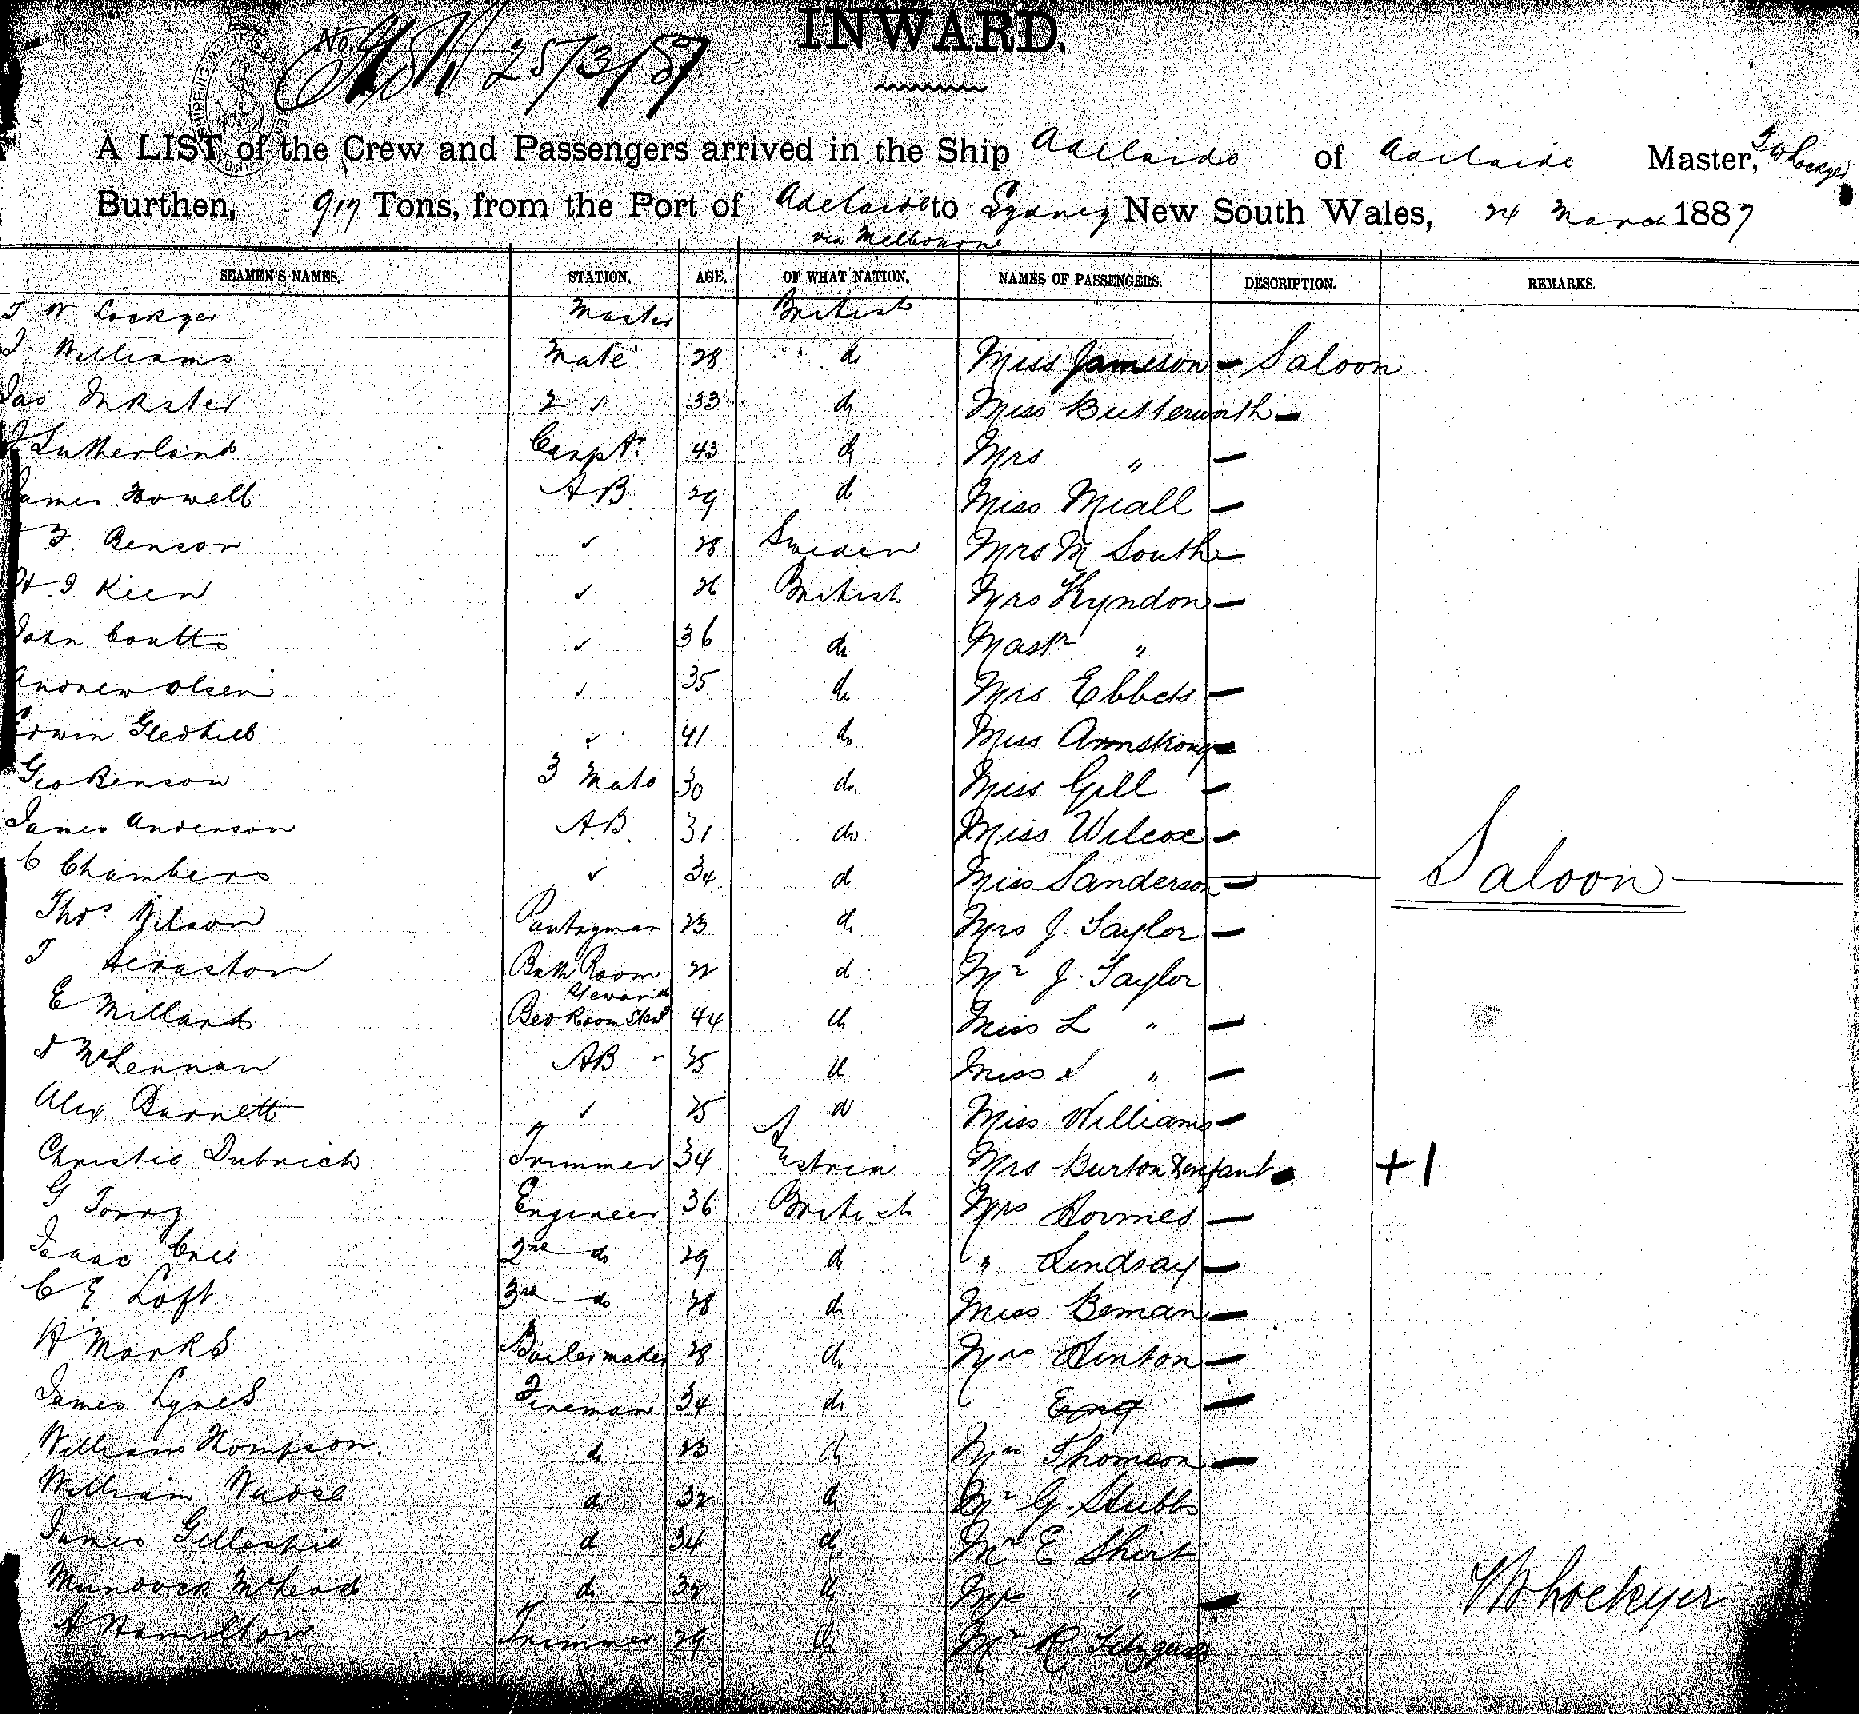 INWARD.
No 25/3/87
A LIST of the Crew and Passengers arrived in the Ship Adelaide of Adelaide Master, T W Lockyer
Burthen, 917 Tons, from the Port of Adelaide to Sydney New South Wales, 24 March 1887
via Melbourne
SEAMEN'S NAMES. STATION. AGE. OF WHAT NATION. NAMES OF PASSENGERS. DESCRIPTION. REMARKS.
T W Lockyer Master British
Williams Mate 28 do Miss Jameson — Saloon
Jas Inkster 2 " 33 do Miss Butterworth —
J Sutherland Carptr 43 do Mrs " —
James Howell AB 29 do Miss Miall —
Benson " 28 Sweden Mrs M South —
Kien " 26 British Mrs Kyndon —
John Coutts " 36 do Mastr "
Andrew Olsen " 35 do Mrs Ebbets —
Edwin Gledhill " 41 do Miss Armstrong —
Geo Benson 3 Mate 30 do Miss Gill —
James Anderson AB 31 do Miss Wilcox —
C Chambers " 34 do Miss Sanderson — Saloon
Thos Wilson Pantryman 23 do Mrs J. Taylor —
T Bath Room Steward 22 do Mr J. Taylor
E Millard Bed Room Stwd 44 do Miss L " —
D McLennan AB 25 do Miss " —
Alex Barnett " 25 do Miss Williams —
Christie Dubrich Trimmer 34 Mrs Burton & infant — +1
G Torry Engineer 36 British Mrs Holmes —
Isaac 2nd do 29 do " Lindsay —
C E Loft 3rd do 28 do Miss Beman —
H Marks Boilermaker 28 do Mrs Hinton —
James Lynes Fireman 34 do " —
William Thompson do 23 do Mrs Thomson —
William do 32 do Mr G. Stubbs
James Gillespie do 34 do Mr E Short
Murdoch McLeod do 32 do Mrs " —
A Hamilton Trimmer 29 do Mr R
T W Lockyer